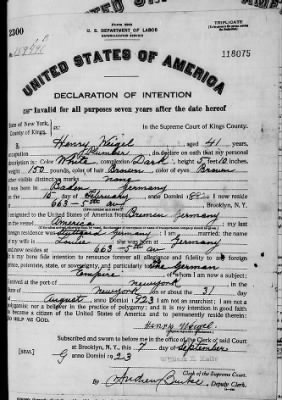 2300
Form 2203
U. S. DEPARTMENT OF LABOR
NATURALIZATION SERVICE
TRIPLICATE
118075
UNITED STATES OF AMERICA
DECLARATION OF INTENTION
Invalid for all purposes seven years after the date hereof
State of New York,
County of Kings.
ss:
In the Supreme Court of Kings County.
Henry Weigel, aged 41 years,
occupation Plumber, do declare on oath that my personal
description is: Color White, complexion Dark, height 5 feet
weight 150 pounds, color of hair Brown, color of eyes Brown
other visible distinctive marks none
I was born in Baden Germany
on the 15 day of February, anno Domini 1882
663 - 5th av Brooklyn, N. Y.
emigrated to the United States of America from Bremen Germany
America
Germany; I am married; the name
wife is Louise; she was born at Germany
and now resides at 663-5th av
It is my bona fide intention to renounce forever all allegiance and fidelity to any foreign
prince, potentate, state, or sovereignty, and particularly to The German
Empire, of whom I am now a subject;
arrived at the port of New york
Newyork, on or about the 31 day
of August, anno Domini 1923; I am not an anarchist; I am not a
polygamist nor a believer in the practice of polygamy; and it is my intention in good faith
to become a citizen of the United States of America and to permanently reside therein:
SO HELP ME GOD.
Henry Weigel
Subscribed and sworn to before me in the office of the Clerk of said Court
at Brooklyn, N. Y., this 7 day of September
[SEAL] anno Domini 1923
Clerk of the Supreme Court.
By Andrew Burke, Deputy Clerk.